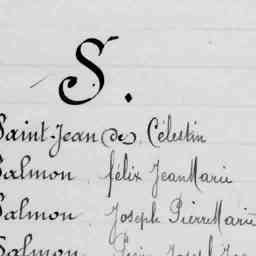 S.
Saint-Jean (de) Célestin
Salmon félix Jean Marie
Salmon Joseph Pierre Marie
Salmon Joseph